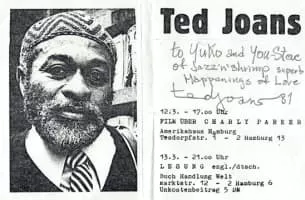 Ted Joans
to Yuko and You-Stae
of Jazz'n'shrimp superb
Happenings of Love
ted joans 81
12.3. - 17.oo Uhr
FILM ÜBER CHARLY PARKER
Amerikahaus Hamburg
Tesdorpfstr. 1 - 2 Hamburg 13
13.3. - 21.oo Uhr
LESUNG engl./dtsch.
Buch Handlung Welt
marktstr. 12 - 2 Hamburg 6
Unkostenbeitrag 5 DM